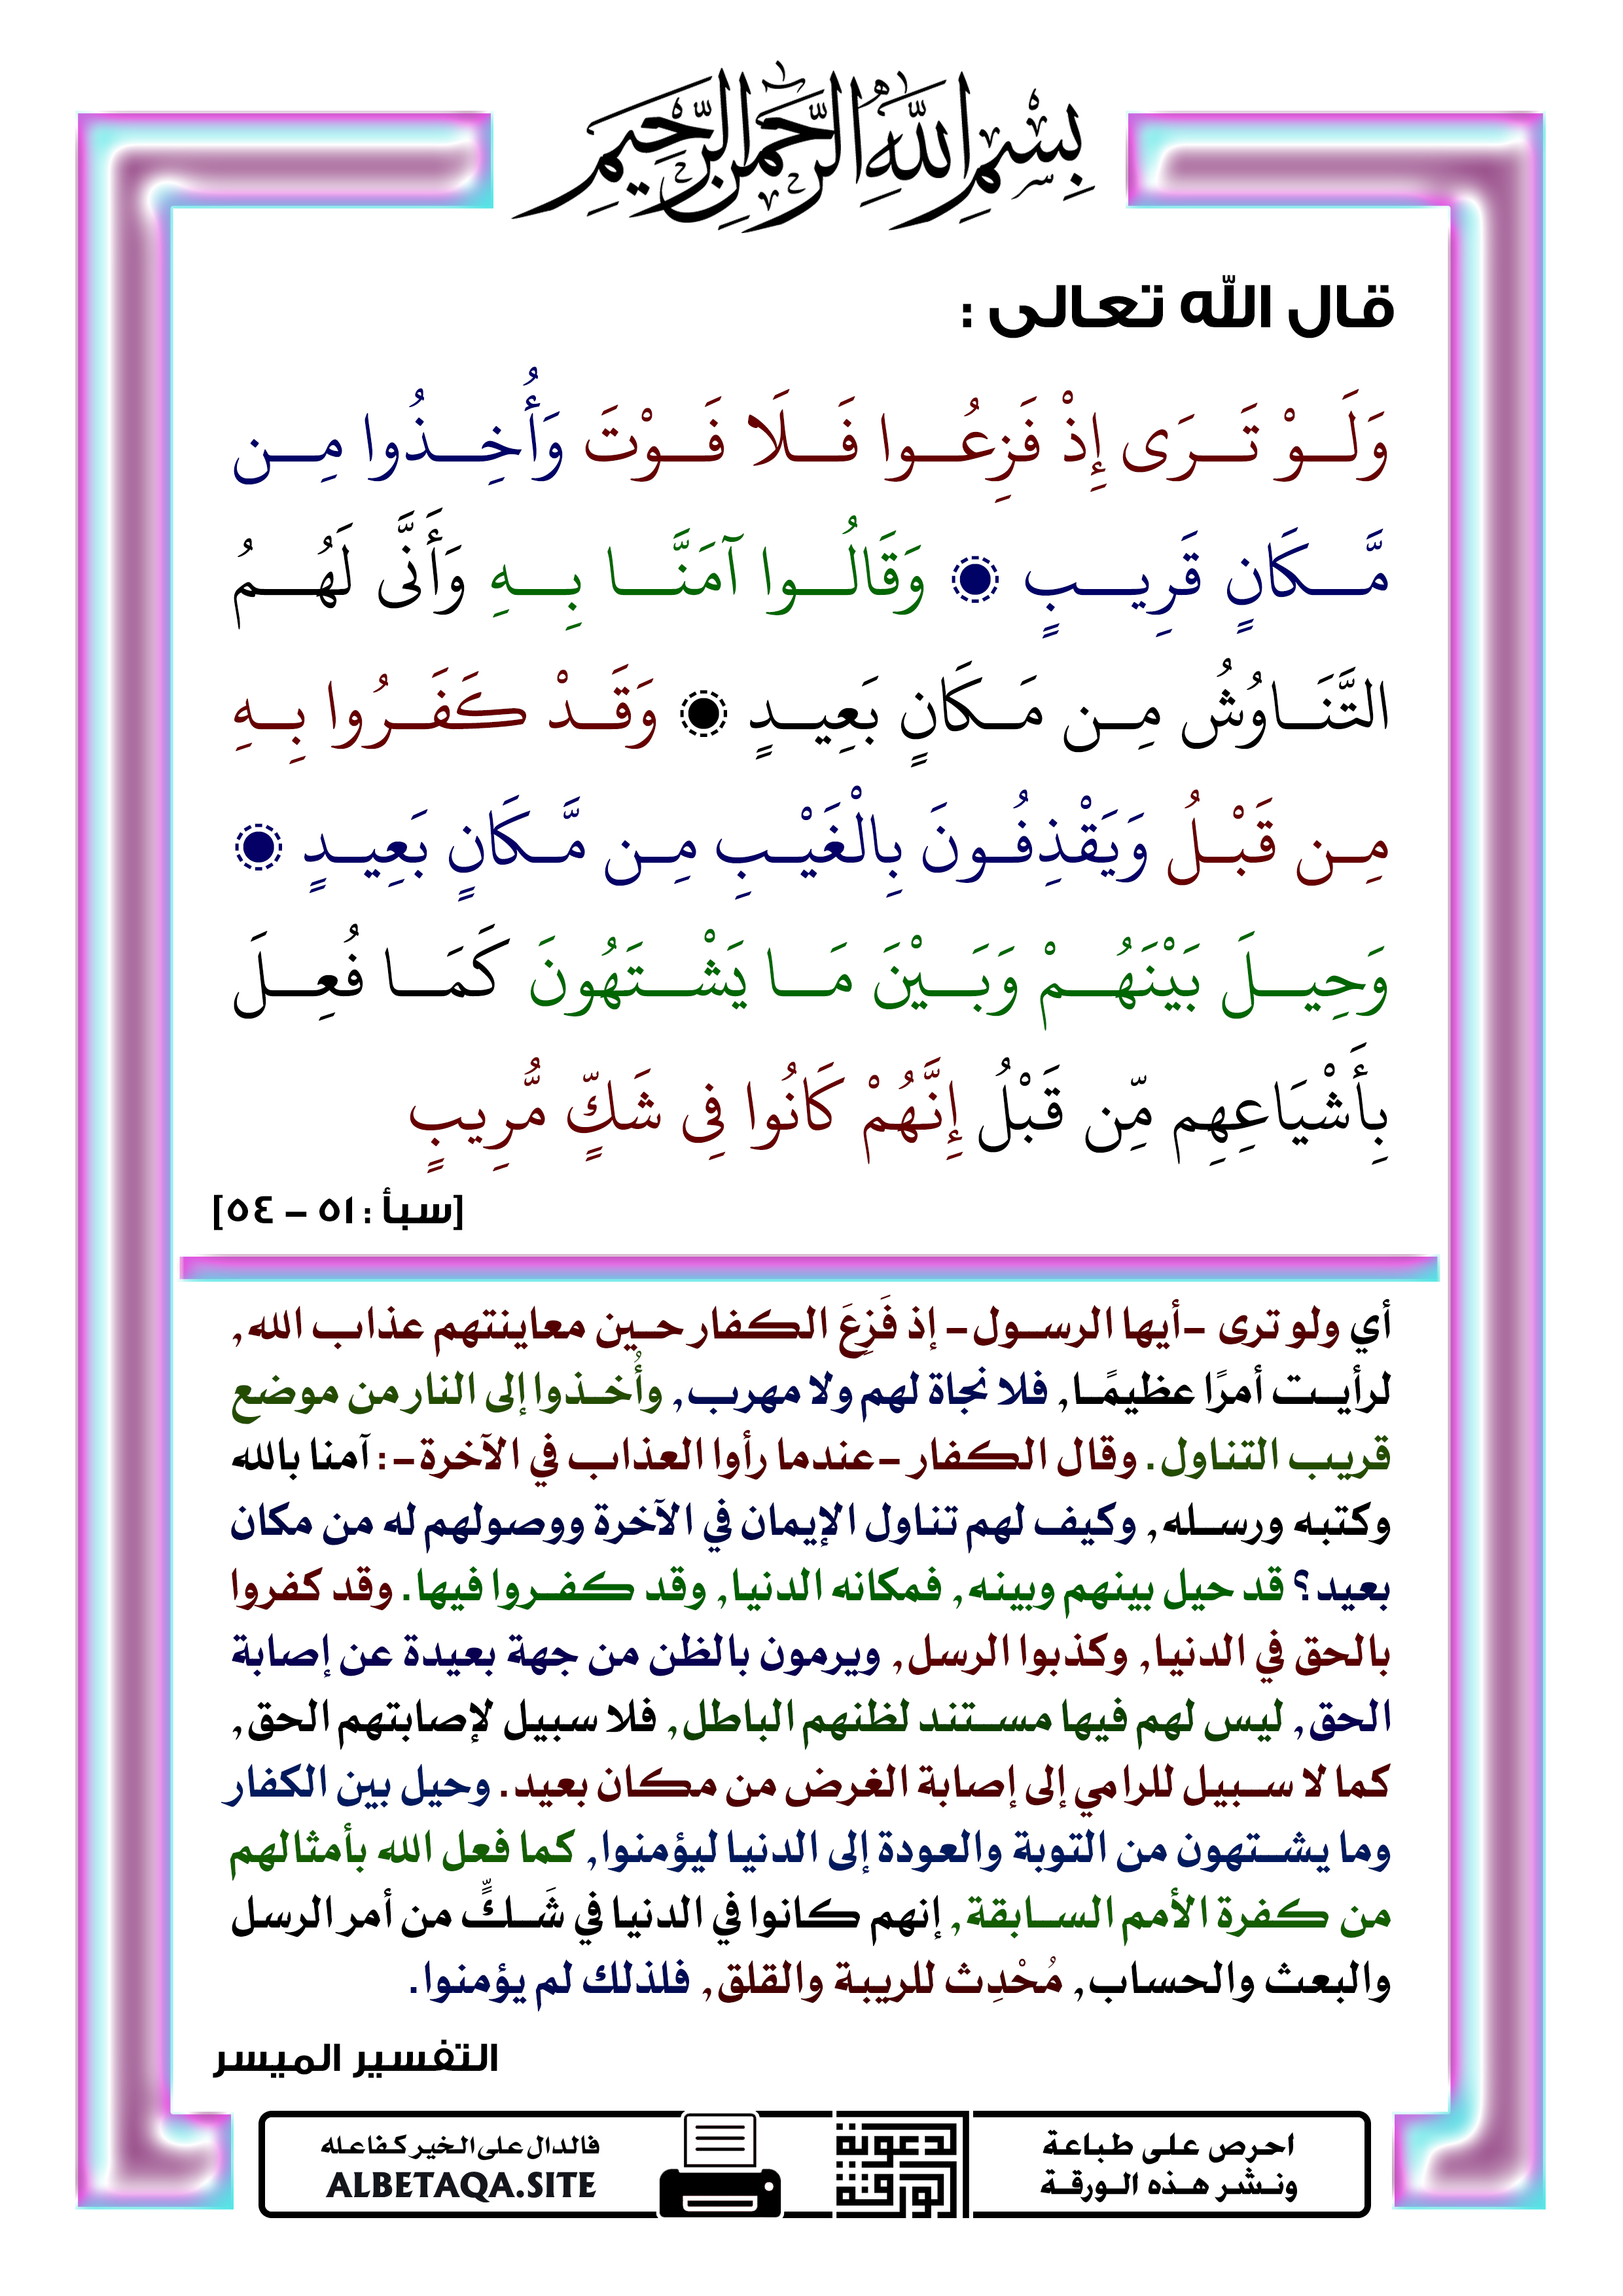 بِسْمِ اللَّهِ الرَّحْمَٰنِ الرَّحِيمِ
قال الله تعالى :
وَلَوْ تَرَى إِذْ فَزِعُوا فَلَا فَوْتَ وَأُخِذُوا مِن
مَّكَانٍ قَرِيبٍ ۞ وَقَالُوا آمَنَّا بِهِ وَأَنَّى لَهُمُ
التَّنَاوُشُ مِن مَكَانٍ بَعِيدٍ ۞ وَقَدْ كَفَرُوا بِهِ
مِن قَبْلُ وَيَقْذِفُونَ بِالْغَيْبِ مِن مَّكَانٍ بَعِيدٍ ۞
وَحِيلَ بَيْنَهُمْ وَبَيْنَ مَا يَشْتَهُونَ كَمَا فُعِلَ
بِأَشْيَاعِهِم مِّن قَبْلُ إِنَّهُمْ كَانُوا فِى شَكٍّ مُّرِيبٍ
[سبأ : ٥١ – ٥٤]
أي ولو ترى -أيها الرسول- إذ فَزِعَ الكفار حين معاينتهم عذاب الله,
لرأيت أمرًا عظيمًا, فلا نجاة لهم ولا مهرب, وأُخذوا إلى النار من موضع
قريب التناول. وقال الكفار -عندما رأوا العذاب في الآخرة-: آمنا بالله
وكتبه ورسله, وكيف لهم تناول الإيمان في الآخرة ووصولهم له من مكان
بعيد؟ قد حيل بينهم وبينه, فمكانه الدنيا, وقد كفروا فيها. وقد كفروا
بالحق في الدنيا, وكذبوا الرسل, ويرمون بالظن من جهة بعيدة عن إصابة
الحق, ليس لهم فيها مستند لظنهم الباطل, فلا سبيل لإصابتهم الحق,
كما لا سبيل للرامي إلى إصابة الغرض من مكان بعيد. وحيل بين الكفار
وما يشتهون من التوبة والعودة إلى الدنيا ليؤمنوا, كما فعل الله بأمثالهم
من كفرة الأمم السابقة, إنهم كانوا في الدنيا في شَكٍّ من أمر الرسل
والبعث والحساب, مُحْدِث للريبة والقلق, فلذلك لم يؤمنوا.
التفسير الميسر
احرص على طباعة
ونشر هذه الورقة
الورقة
الدعوية
فالدال على الخير كفاعله
ALBETAQA.SITE